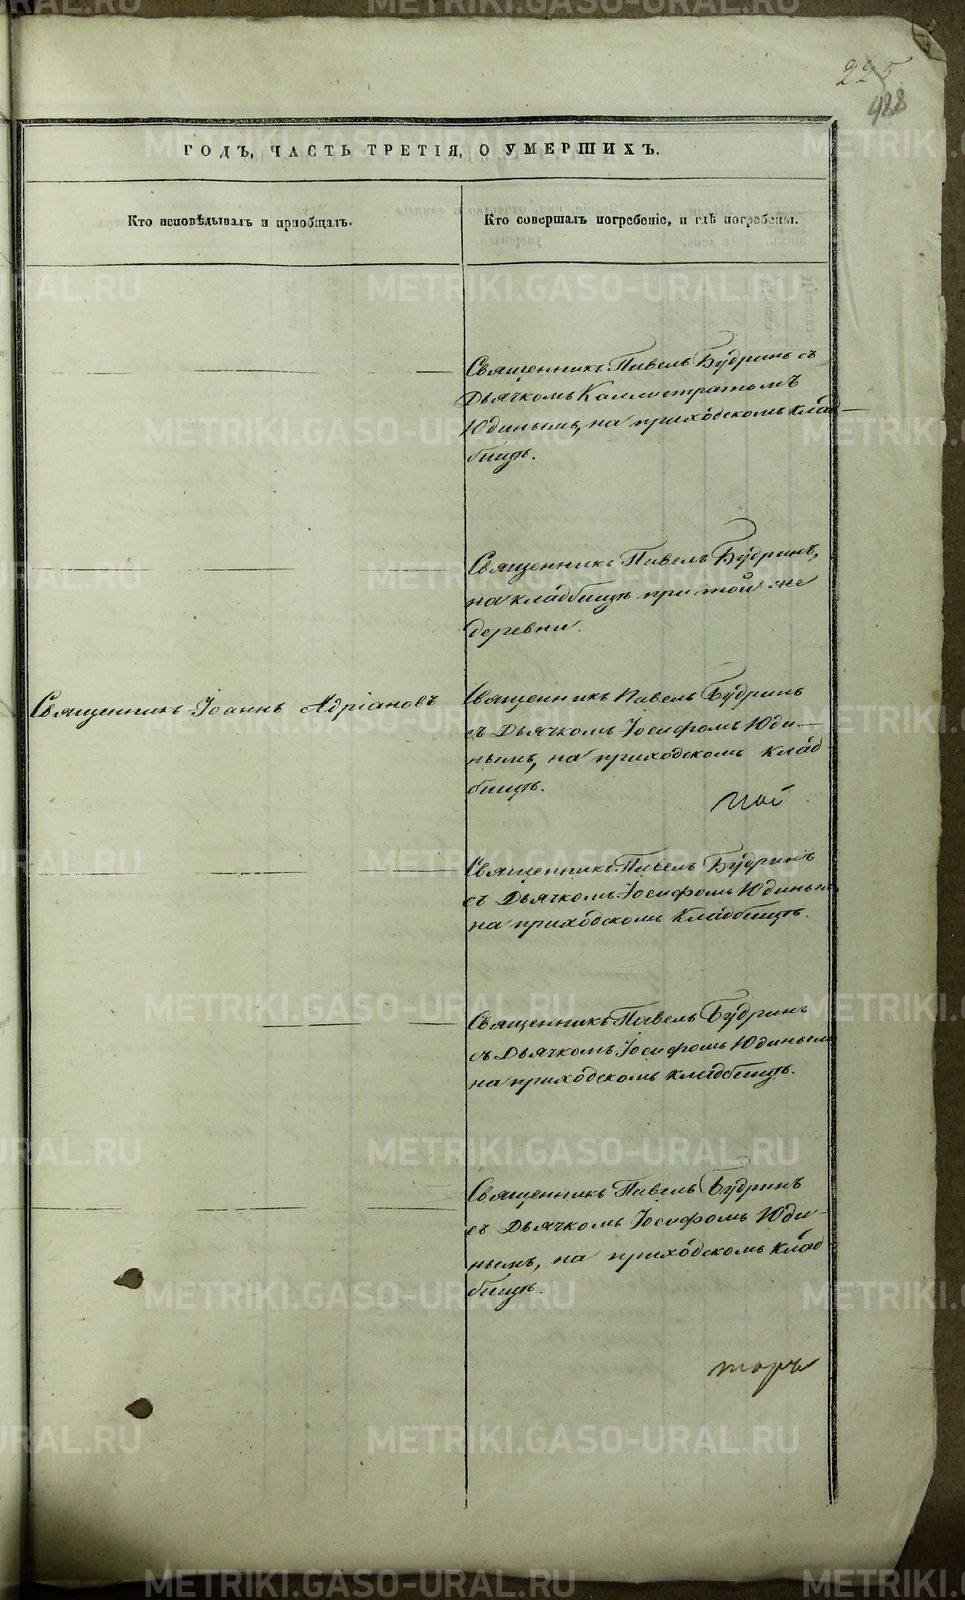 225.
428
ГОДЪ, ЧАСТЬ ТРЕТІЯ, О УМЕРШИХЪ.
Кто исповѣдывалъ и пріобщалъ.
Кто совершалъ погребеніе, и гдѣ погребены.
Священникъ Павелъ Будринъ съ
Дьячкомъ Каллистратомъ
Юдинымъ, на приходскомъ клад-
бищѣ.
Священникъ Павелъ Будринъ,
на кладбищѣ при той же
деревни.
Священникъ Іоаннъ Адріановъ
Священникъ Павелъ Будринъ
съ Дьячкомъ Іосифомъ Юди-
нымъ, на приходскомъ клад-
бищѣ.
Священникъ Павелъ Будринъ
съ Дьячкомъ Іосифомъ Юдинымъ
на приходскомъ кладбищѣ.
Священникъ Павелъ Будринъ
съ Дьячкомъ Іосифомъ Юдинымъ
на приходскомъ кладбищѣ.
Священникъ Павелъ Будринъ
съ Дьячкомъ Іосифомъ Юди-
нымъ, на приходскомъ клад
бищѣ.
торъ
METRIKI.GASO-URAL.RU